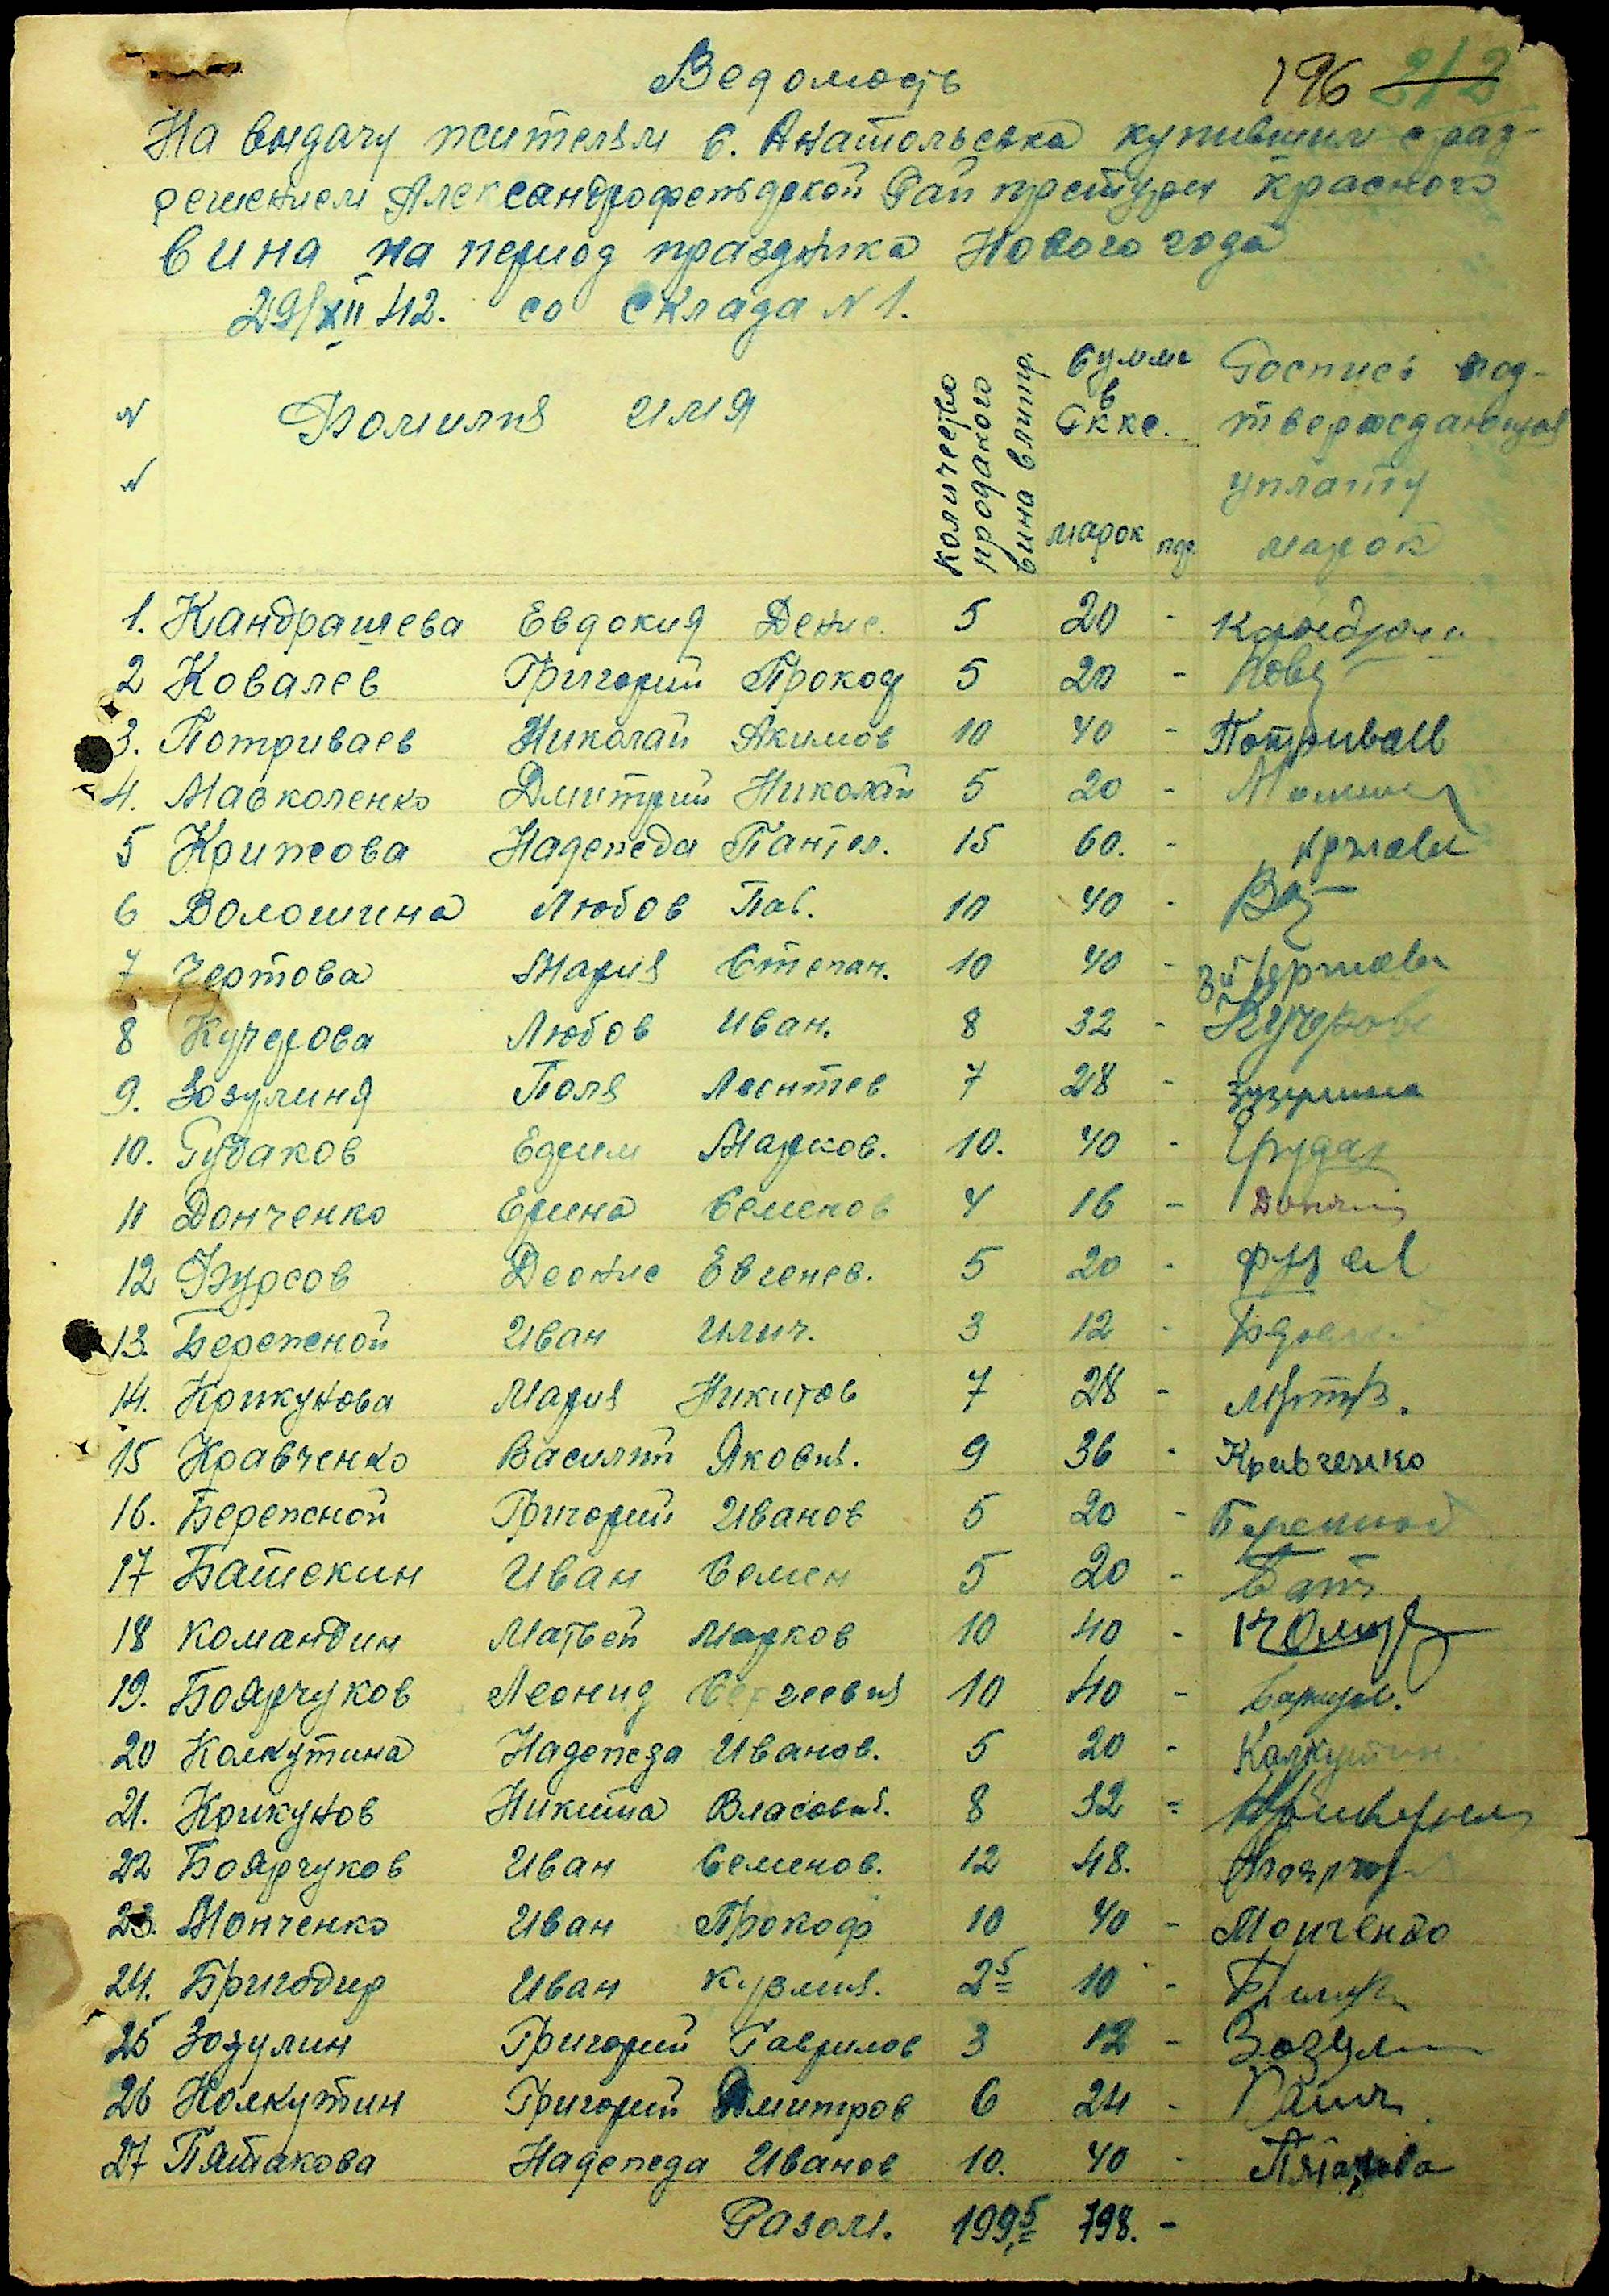 Ведомость
196 212
На выдачу жителям с. Анатольевка купивших с раз-
решением Александрофельдской Рай префтуры красного
вина на период праздника Нового года
29/XII 42. со склада N 1.
N
N
Фомилия имя
количество проданого вина в литр.
Сумма в Скке.
марок
пф.
Роспись под-
тверждающая
уплату
марок
1. Кандрашева Евдокия Дение. 5 20 -
2 Ковалев Григорий Прокоф 5 20 - Ков
3. Потриваев Николай Акимов 10 40 - Потриваев
4. Мавколенко Дмитрий Николай 5 20 -
5 Крижова Надежда Пантел. 15 60. -
6 Волошина Любов Пав. 10 40 -
7 Чертова Мария Степан. 10 40 -
8 Кучерова Любов Иван. 8 32 -
9. Зозулиня Поля Леонтев 7 28 - Зузулина
10. Рудаков Ефим Марков. 10. 40 -
11 Донченко Ерина Семенов 4 16 -
12 Фурсов Деоние Евгенев. 5 20 -
13. Бережной Иван Илич. 3 12 -
14. Крикунова Мария Никитов 7 28 -
15 Кравченко Василий Яковив. 9 36 - Кравченко
16. Бережной Григорий Иванов 5 20 - Бережной
17 Батскин Иван Семен 5 20 - Бат
18 Командин Матвей Марков 10 40 -
19. Боярчуков Леонид Сергеевия 10 40 -
20 Калкутина Надежда Иванов. 5 20 - Калкутин
21. Крикунов Никита Власовив. 8 32 =
22 Боярчуков Иван Семенов. 12 48.
23. Монченко Иван Прокоф 10 40 - Монченко
24. Бригодир Иван Кузмив. 2 5 10 -
25 Зозулин Григорий Гаврилов 3 12 - Зозулин
26 Колкутин Григорий Дмитров 6 24 -
27 Пятакова Надежда Иванов 10. 40 - Пятакова
Разом. 199,5 798. -